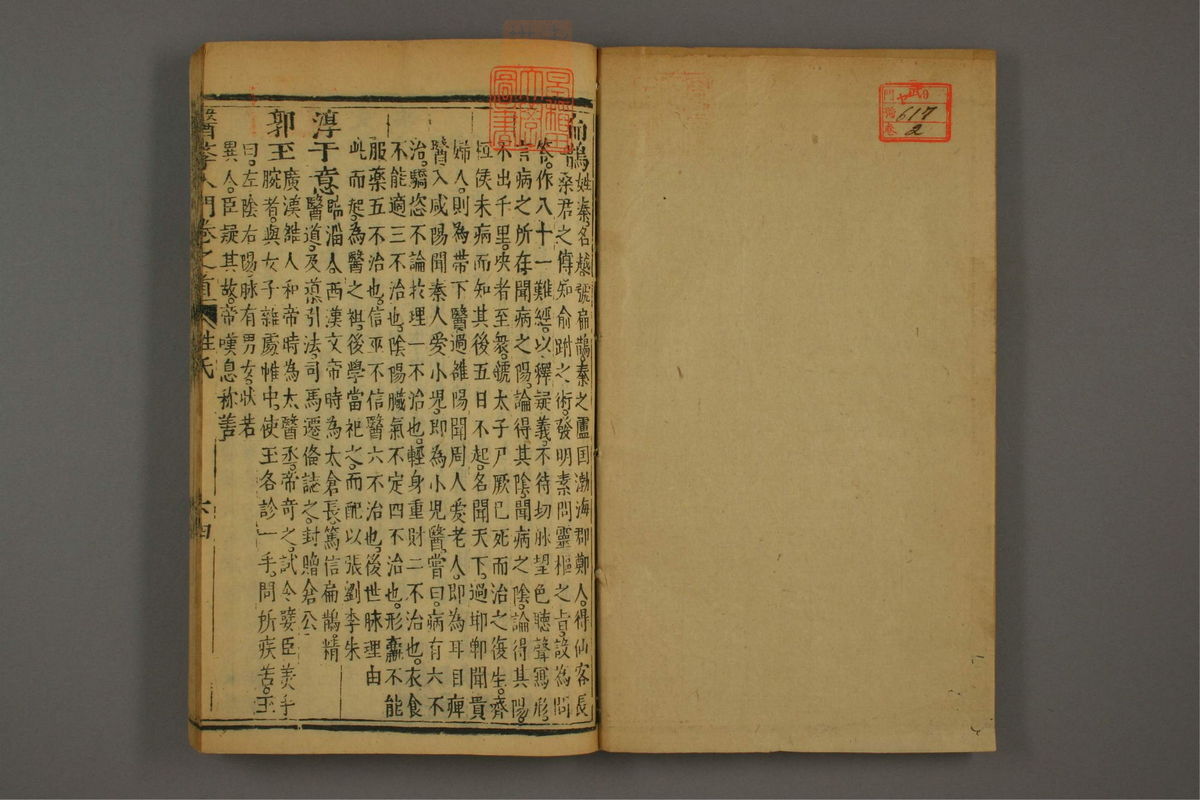 扁鵲姓秦名越號扁鵲秦之盧国渤海郡鄭人得仙客長
桑君之傳知俞跗之術發明素問靈樞之旨設為問
答作八十一難經以釋疑義不待切脉望色聽聲寫形
言病之所在聞病之陽論得其陰聞病之陰論得其陽
不出千里决者至衆虢太子尸厥已死而治之復生齊
桓侯未病而知其後五日不起名聞天下過邯鄲聞貴
婦人則為帶下醫過雒陽聞周人愛老人即為耳目痺
醫入咸陽聞秦人愛小兒即為小兒醫嘗曰病有六不
治驕恣不論於理一不治也輕身重財二不治也衣食
不能適三不治也陰陽臟氣不定四不治也形羸不能
服藥五不治也信巫不信醫六不治也後世脉理由
此而起為醫之祖後學當祀之而配以張劉李朱
淳于意臨淄人西漢文帝時為太倉長篤信扁鵲精
醫道及導引法司馬遷俻誌之封贈倉公
郭玉廣漢雒人和帝時為太醫丞帝奇之試令嬖臣美手
腕者與女子雜處帷中使玉各診一手問所疾苦玉
曰左陰右陽脉有男女状若
異人臣疑其故帝嘆息称善
醫學入門卷之首 姓氏 六四
617
2